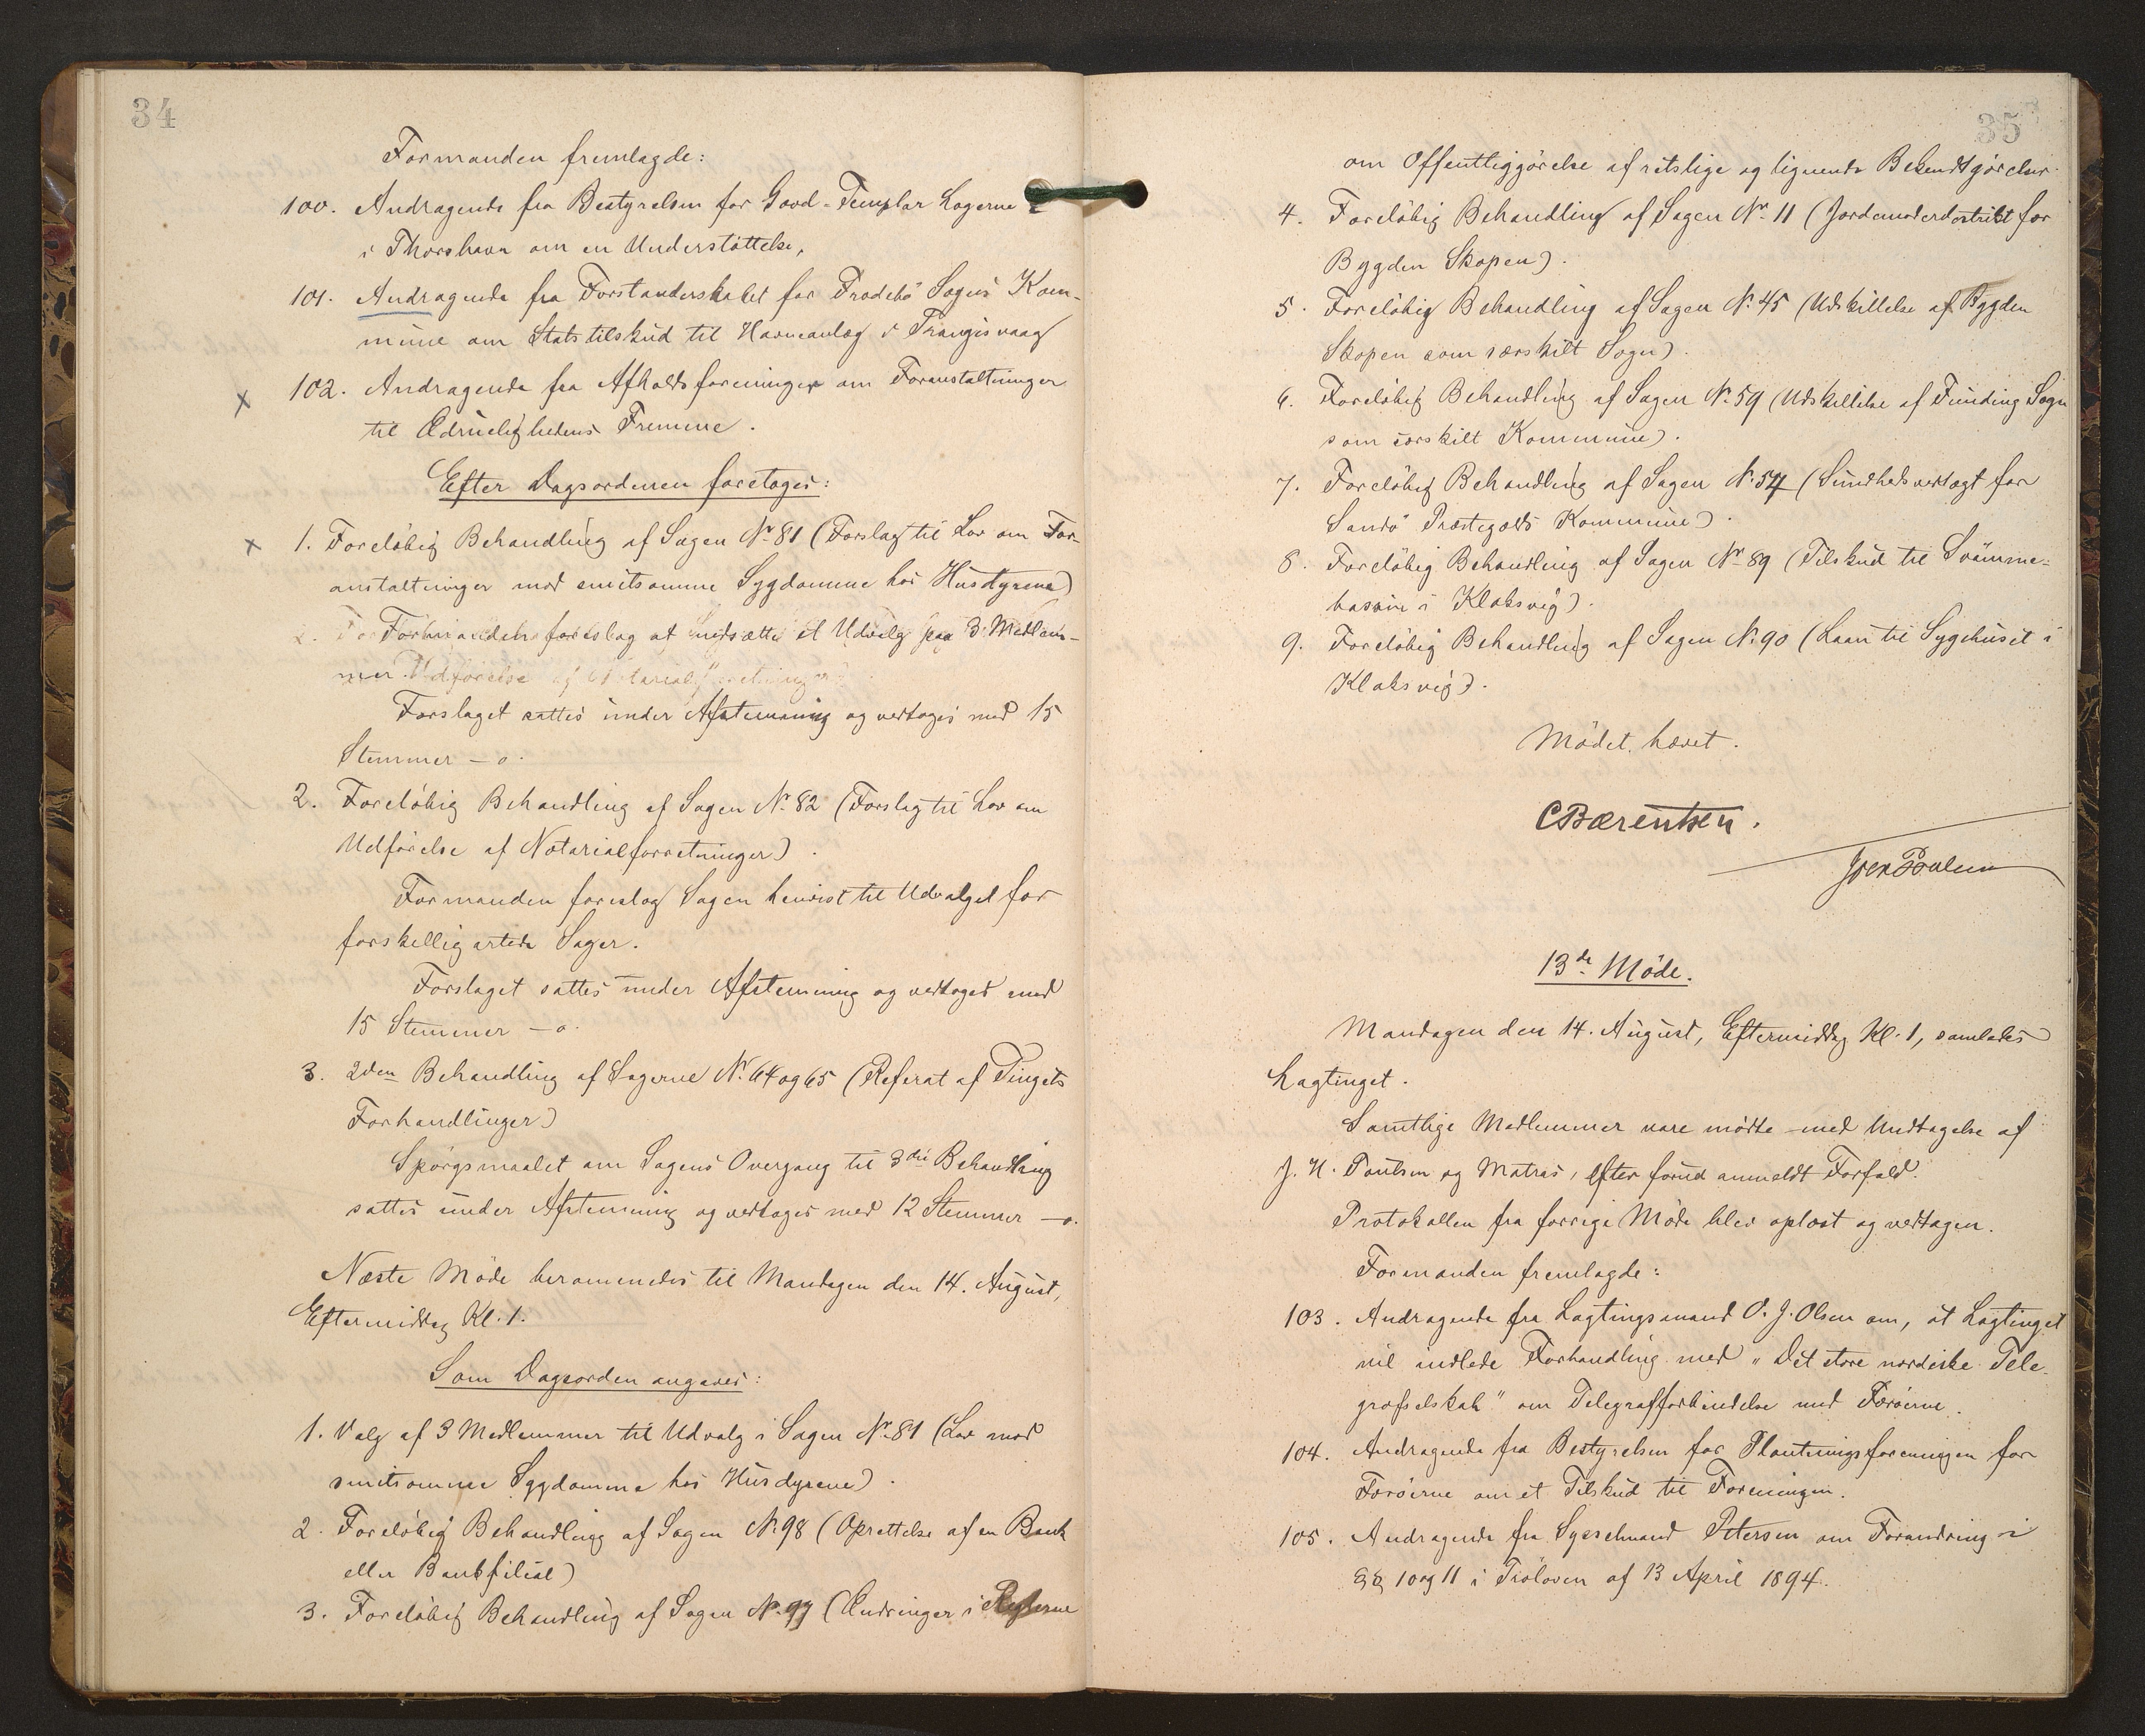 34
Formanden fremlagde:
100. Andragende fra Bestyrelsen for Good-Templar Logerne
i Thorshavn om en Understøttelse,
101. Andragende fra Forstanderskabet for Frodebø Sogns Kom-
mune om Statstilskud til Havneanlæg i Trangisvaag
x 102. Andragende fra Afholdsforeninger om Foranstaltninger
til Ædruelighedens Fremme.
Efter Dagsordenen foretoges:
x 1. Foreløbig Behandling af Sagen No 81 (Forslag til Lov om For-
anstaltninger mod smitsomme Sygdomme hos Husdyrene)
Formanden foreslog at nedsætte et Udvalg paa 3 Medlem-
mer.
Forslaget sattes under Afstemning og vedtoges med 15
Stemmer – o.
2. Foreløbig Behandling af Sagen No 82 (Forslag til Lov om
Udførelse af Notarialforretninger).
Formanden foreslog Sagen henvist til Udvalget for
forskelligartede Sager.
Forslaget sattes under Afstemning og vedtoges med
15 Stemmer – o.
3. 2den Behandling af Sagerne No 64 og 65 (Referat af Tingets
Forhandlinger)
Spørgsmaalet om Sagens Overgang til 3die Behandling
sattes under Afstemning og vedtoges med 12 Stemmer – o.
Næste Møde berammedes til Mandagen den 14. August,
Eftermiddag Kl. 1.
Som Dagsorden angaves:
1. Valg af 3 Medlemmer til Udvalg i Sagen No 81 (Lov mod
smitsomme Sygdomme hos Husdyrene).
2. Foreløbig Behandling af Sagen No 98 (Oprettelse af en Bank
eller Bankfilial)
3. Foreløbig Behandling af Sagen No 99 (Ændringer i Reglerne
35
om Offentliggörelse af retslige og lignende Bekendtgörelser.
4. Foreløbig Behandling af Sagen No 11 (Jordemoderdistrikt for
Bygden Skopen).
5. Foreløbig Behandling af Sagen No 45 (Udskillelse af Bygden
Skopen som særskilt Sogn).
6. Foreløbig Behandling af Sagen No 59 (Udskillelse af Funding Sogn
som særskilt Kommune).
7. Foreløbig Behandling af Sagen No 54 (Sundhedsvedtægt for
Sandø Præstegælds Kommune).
8. Foreløbig Behandling af Sagen No 89 (Tilskud til Svömme-
bassin i Klaksvig).
9. Foreløbig Behandling af Sagen No 90 (Laan til Sygehuset i
Klaksvig).
Mödet hævet.
CBærentsen.
Joen Poulsen
13de Møde.
Mandagen den 14. August, Eftermiddag Kl. 1, samledes
Lagtinget.
Samtlige Medlemmer vare mødte med Undtagelse af
J. H. Poulsen og Matras, efter forud anmeldt Forfald.
Protokollen fra forrige Møde blev oplæst og vedtagen.
Formanden fremlagde:
103. Andragende fra Lagtingsmand O. J. Olsen om, at Lagtinget
vil indlede Forhandling med "Det store nordiske Tele-
grafselskab" om Telegrafforbindelse med Færøerne.
104. Andragende fra Bestyrelsen for Plantningsforeningen for
Færøerne om et Tilskud til Foreningen.
105. Andragende fra Sysselmand Petersen om Forandring i
§§ 10 og 11 i Fröloven af 13 April 1894.